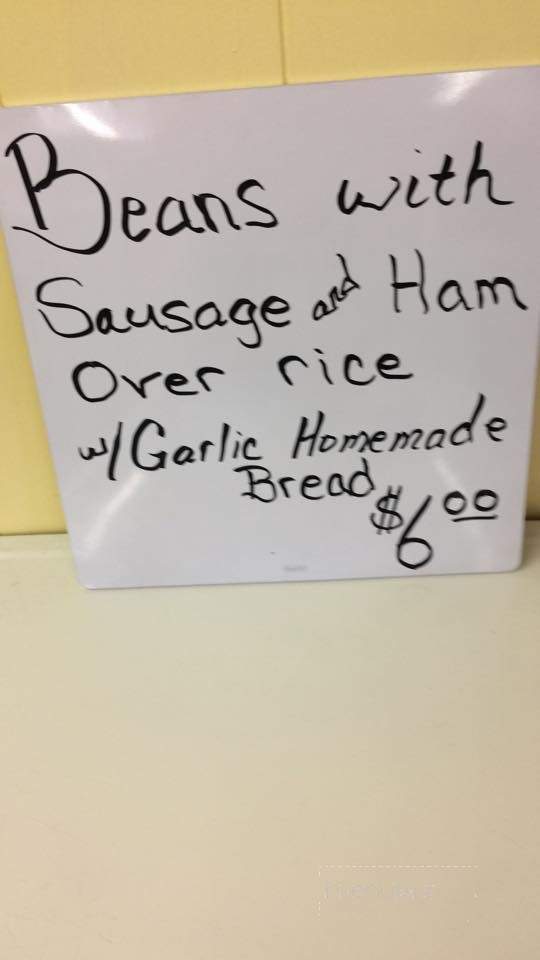 Beans with
Sausage and Ham
Over rice
w/ Garlic Homemade
Bread
$6.00